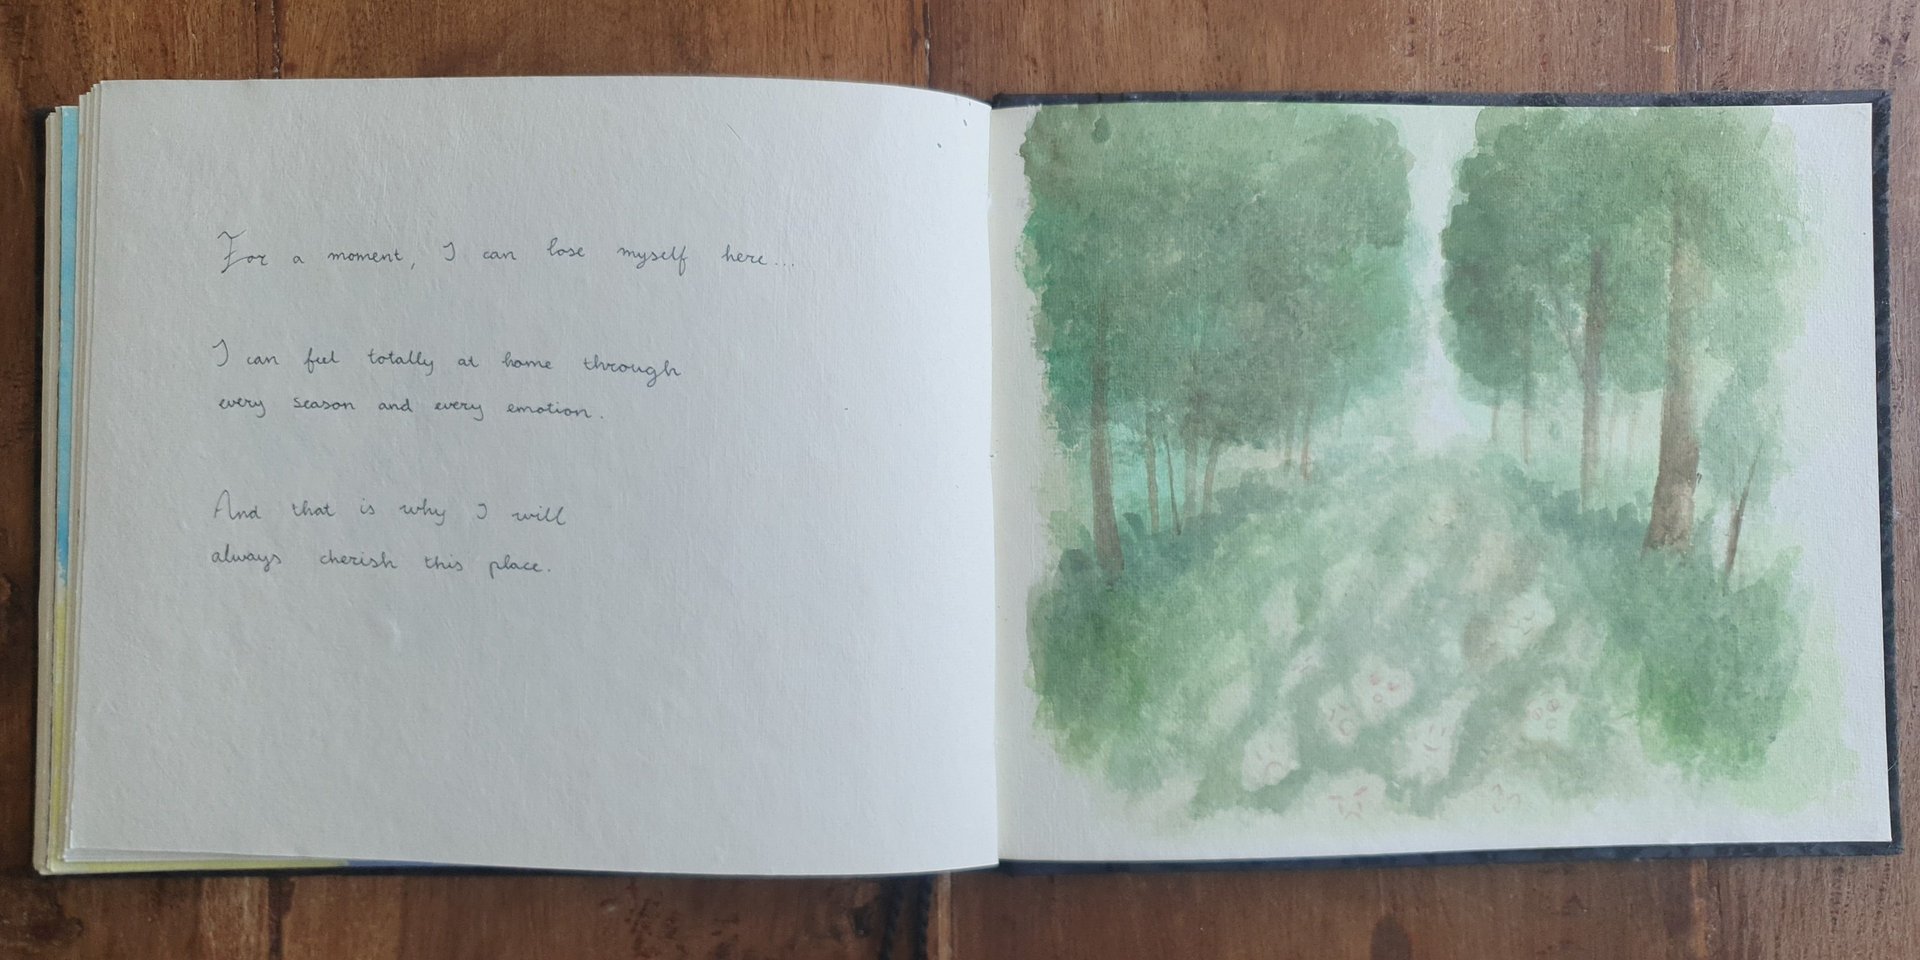 For a moment, I can lose myself here...
I can feel totally at home through
every season and every emotion.
And that is why I will
always cherish this place.